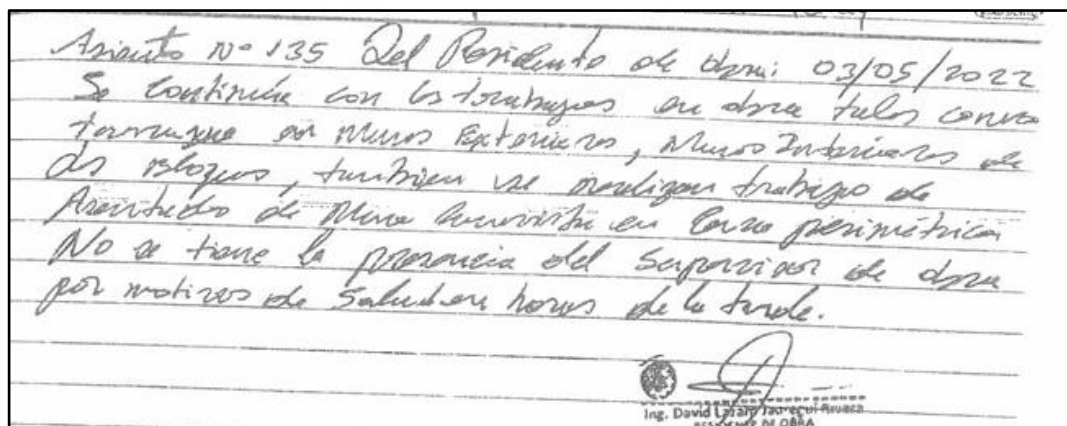 Asiento N° 135 Del Residente de obra: 03/05/2022
Se continúa con los trabajos en obra tales como
tarrajeo en Muros Exteriores, Muros Interiores de
los Bloques, tambien se realizan trabajo de
Asentado de Muro Caravista en Cerco perimétrico
No se tiene la presencia del Supervisor de obra
por motivos de Salud en horas de la tarde.
Ing. David Lazaro Jauregui
RESIDENTE DE OBRA